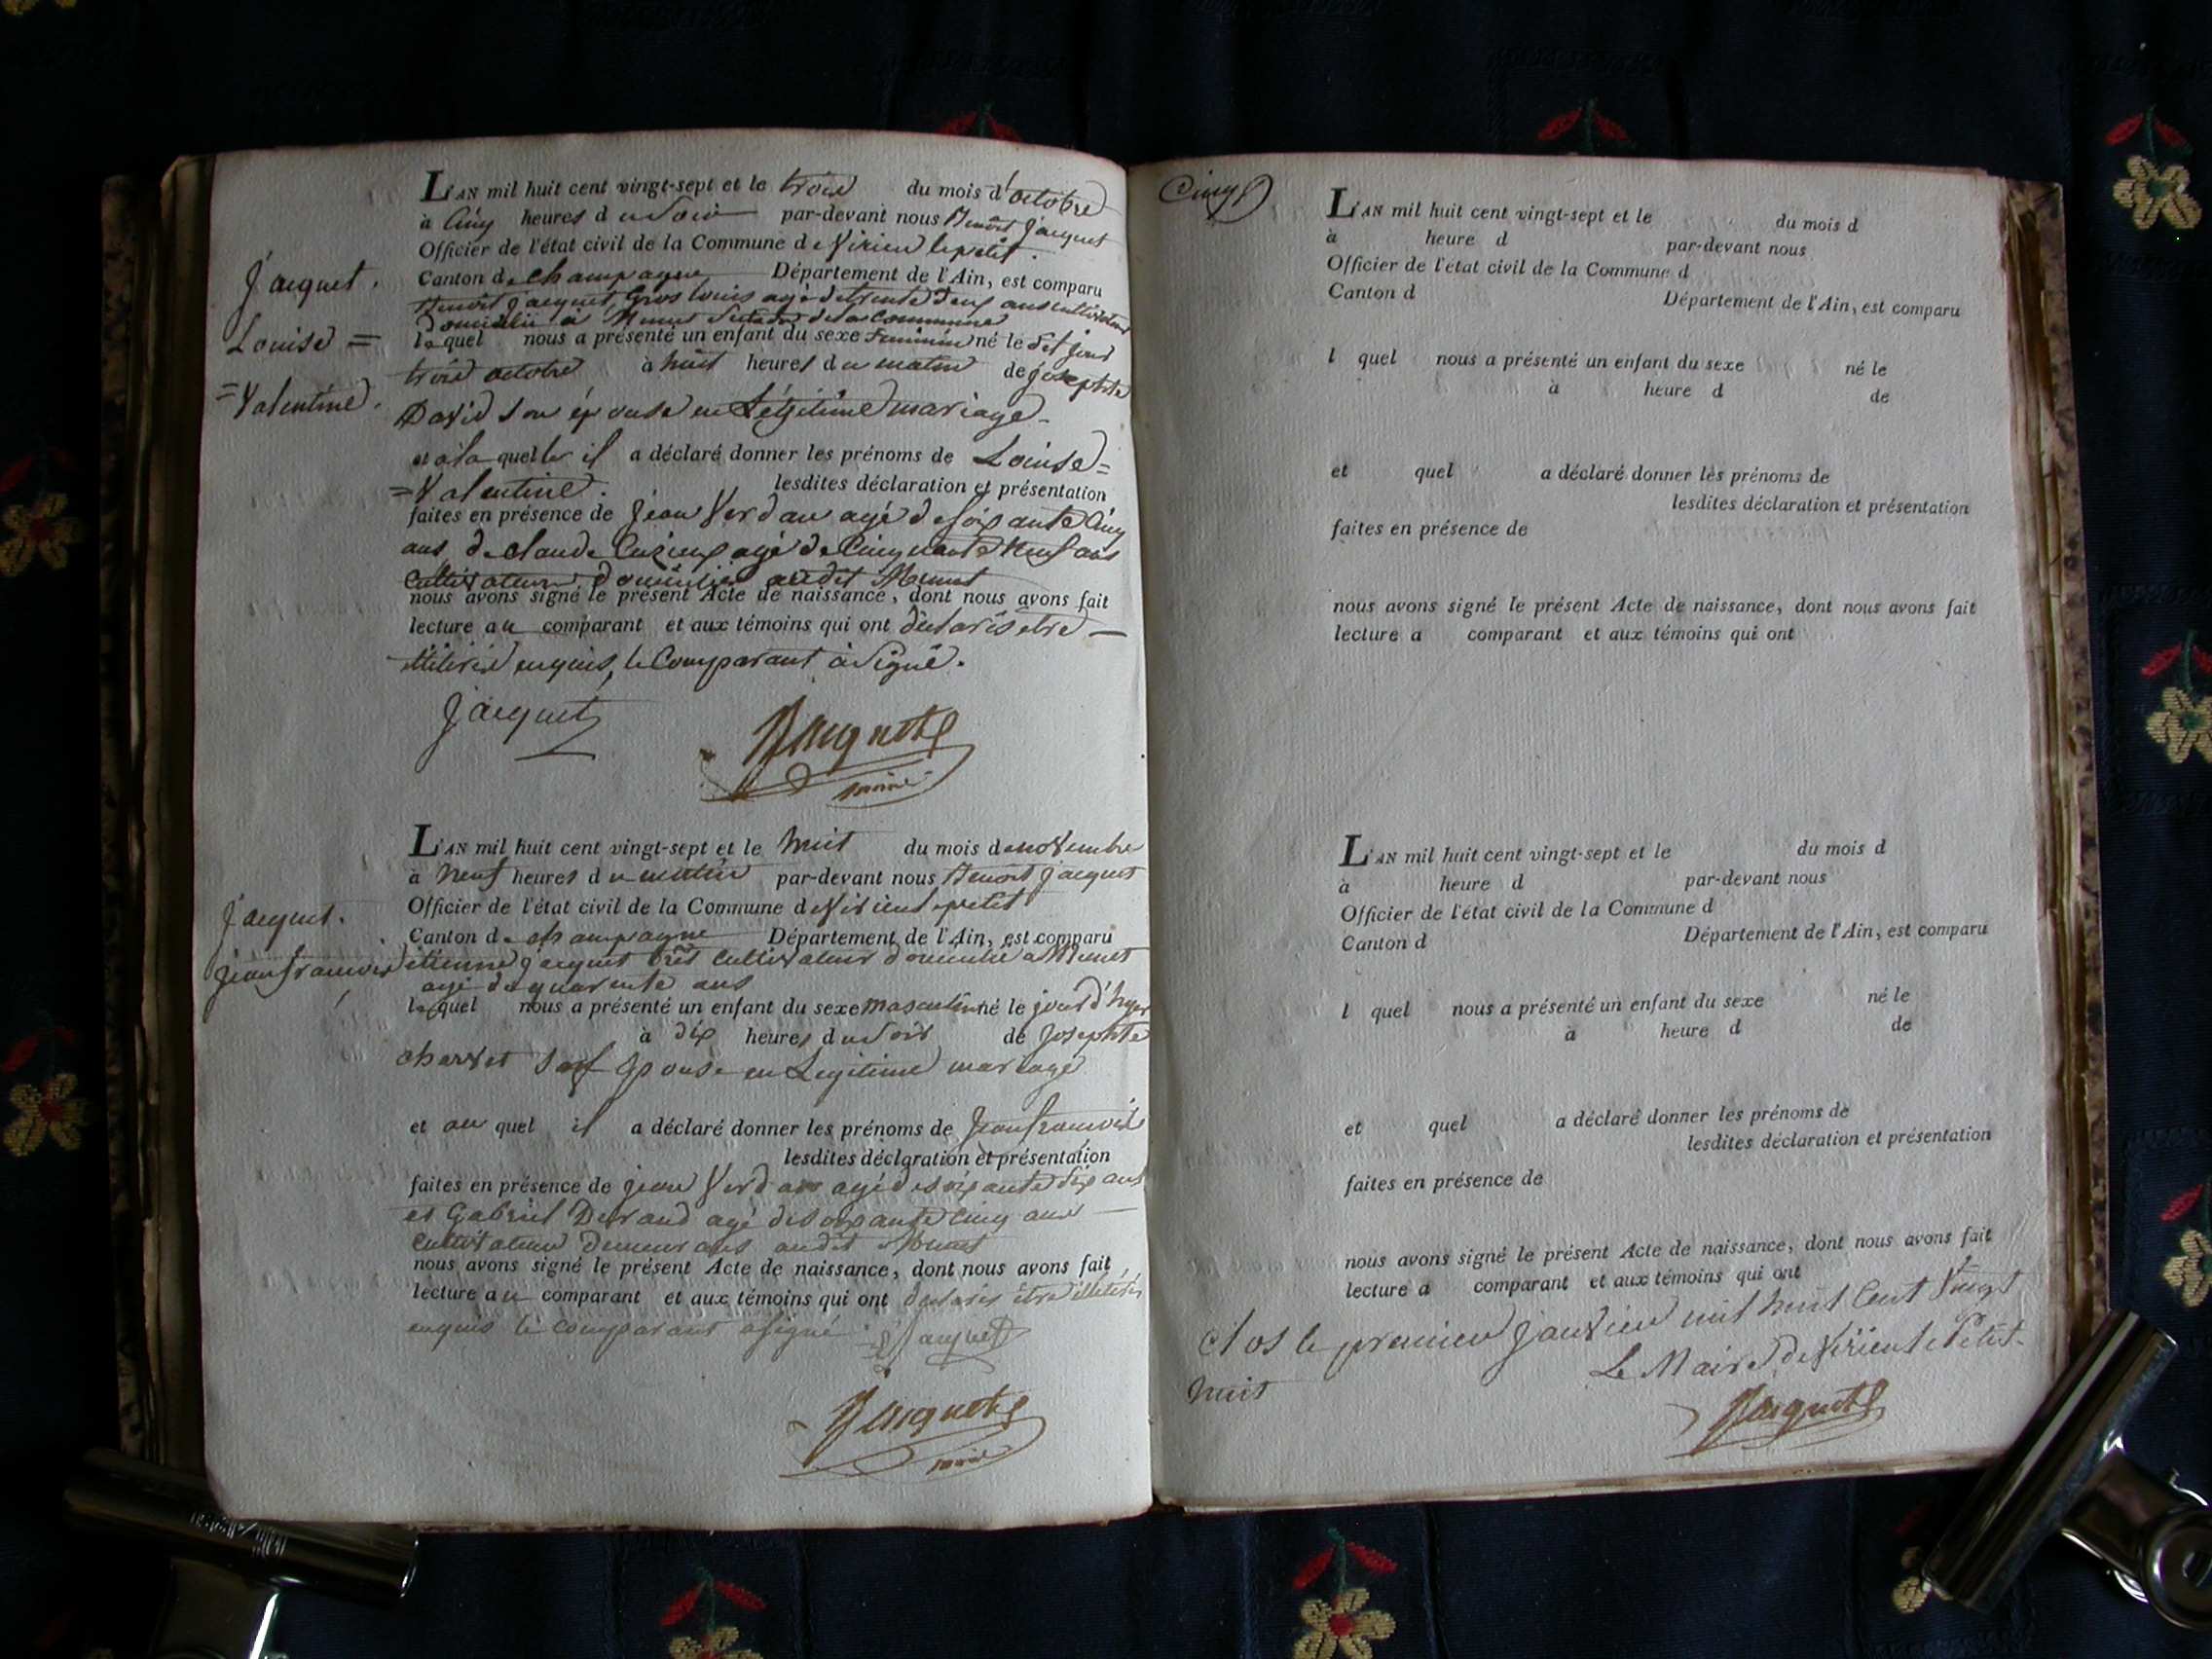 L'AN mil huit cent vingt-sept et le trois du mois d'octobre
à Cinq heures du Soir par-devant nous Benoit jacquet
Officier de l'état civil de la Commune de Virieu le petit
Canton de champagne Département de l'Ain, est comparu
Benoit jacquet, Gros louis agé de trente deux ans cultivateur
domicilié à Munet de la Commune
lequel nous a présenté un enfant du sexe feminin né le dit jour
trois octobre à huit heures du matin de josephte
David son épouse en Légitime mariage
et à la quelle il a déclaré donner les prénoms de Louise=
=Valentine. lesdites déclaration et présentation
faites en présence de jean Verdau agé de soixante Cinq
ans de claude agé de Cinquante neuf ans
Cultivateurs domiciliés audit Munet
nous avons signé le présent Acte de naissance, dont nous avons fait
lecture au comparant et aux témoins qui ont declarés etre
illiteres enquis, le Comparant à Signé.
Jacquet
Jacquet
maire
Jacquet.
Louise =
=Valentine.
L'AN mil huit cent vingt-sept et le huit du mois de novembre
à neuf heures du matin par-devant nous Benoit jacquet
Officier de l'état civil de la Commune de Virieu le petit
Canton de champagne Département de l'Ain, est comparu
etienne jacquet cultivateur domicilié a Munet
agé de quarente ans
lequel nous a présenté un enfant du sexe masculin né le jour d'hyer
à dix heures du soir de Josephte
chervet son Epouse en Legitime mariage
et au quel il a déclaré donner les prénoms de Jean francois
lesdites déclaration et présentation
faites en présence de jean Verdau agé de soixante dix ans
et Gabriel Durand agé de soixante cinq ans
cultivateurs demeurans audit Munet
nous avons signé le présent Acte de naissance, dont nous avons fait
lecture au comparant et aux témoins qui ont declarés être illiterés
enquis le comparant a signé Jacquet
Jacquet
maire
jacquet.
jean francois
Cinq
L'AN mil huit cent vingt-sept et le du mois d
à heure d par-devant nous
Officier de l'état civil de la Commune d
Canton d Département de l'Ain, est comparu
l quel nous a présenté un enfant du sexe né le
à heure d de
et quel a déclaré donner les prénoms de
lesdites déclaration et présentation
faites en présence de
nous avons signé le présent Acte de naissance, dont nous avons fait
lecture a comparant et aux témoins qui ont
L'AN mil huit cent vingt-sept et le du mois d
à heure d par-devant nous
Officier de l'état civil de la Commune d
Canton d Département de l'Ain, est comparu
l quel nous a présenté un enfant du sexe né le
à heure d de
et quel a déclaré donner les prénoms de
lesdites déclaration et présentation
faites en présence de
nous avons signé le présent Acte de naissance, dont nous avons fait
lecture a comparant et aux témoins qui ont
Clos le premier janvier mil huit Cent Vingt
huit Le Maire de Virieu le Petit
Jacquet